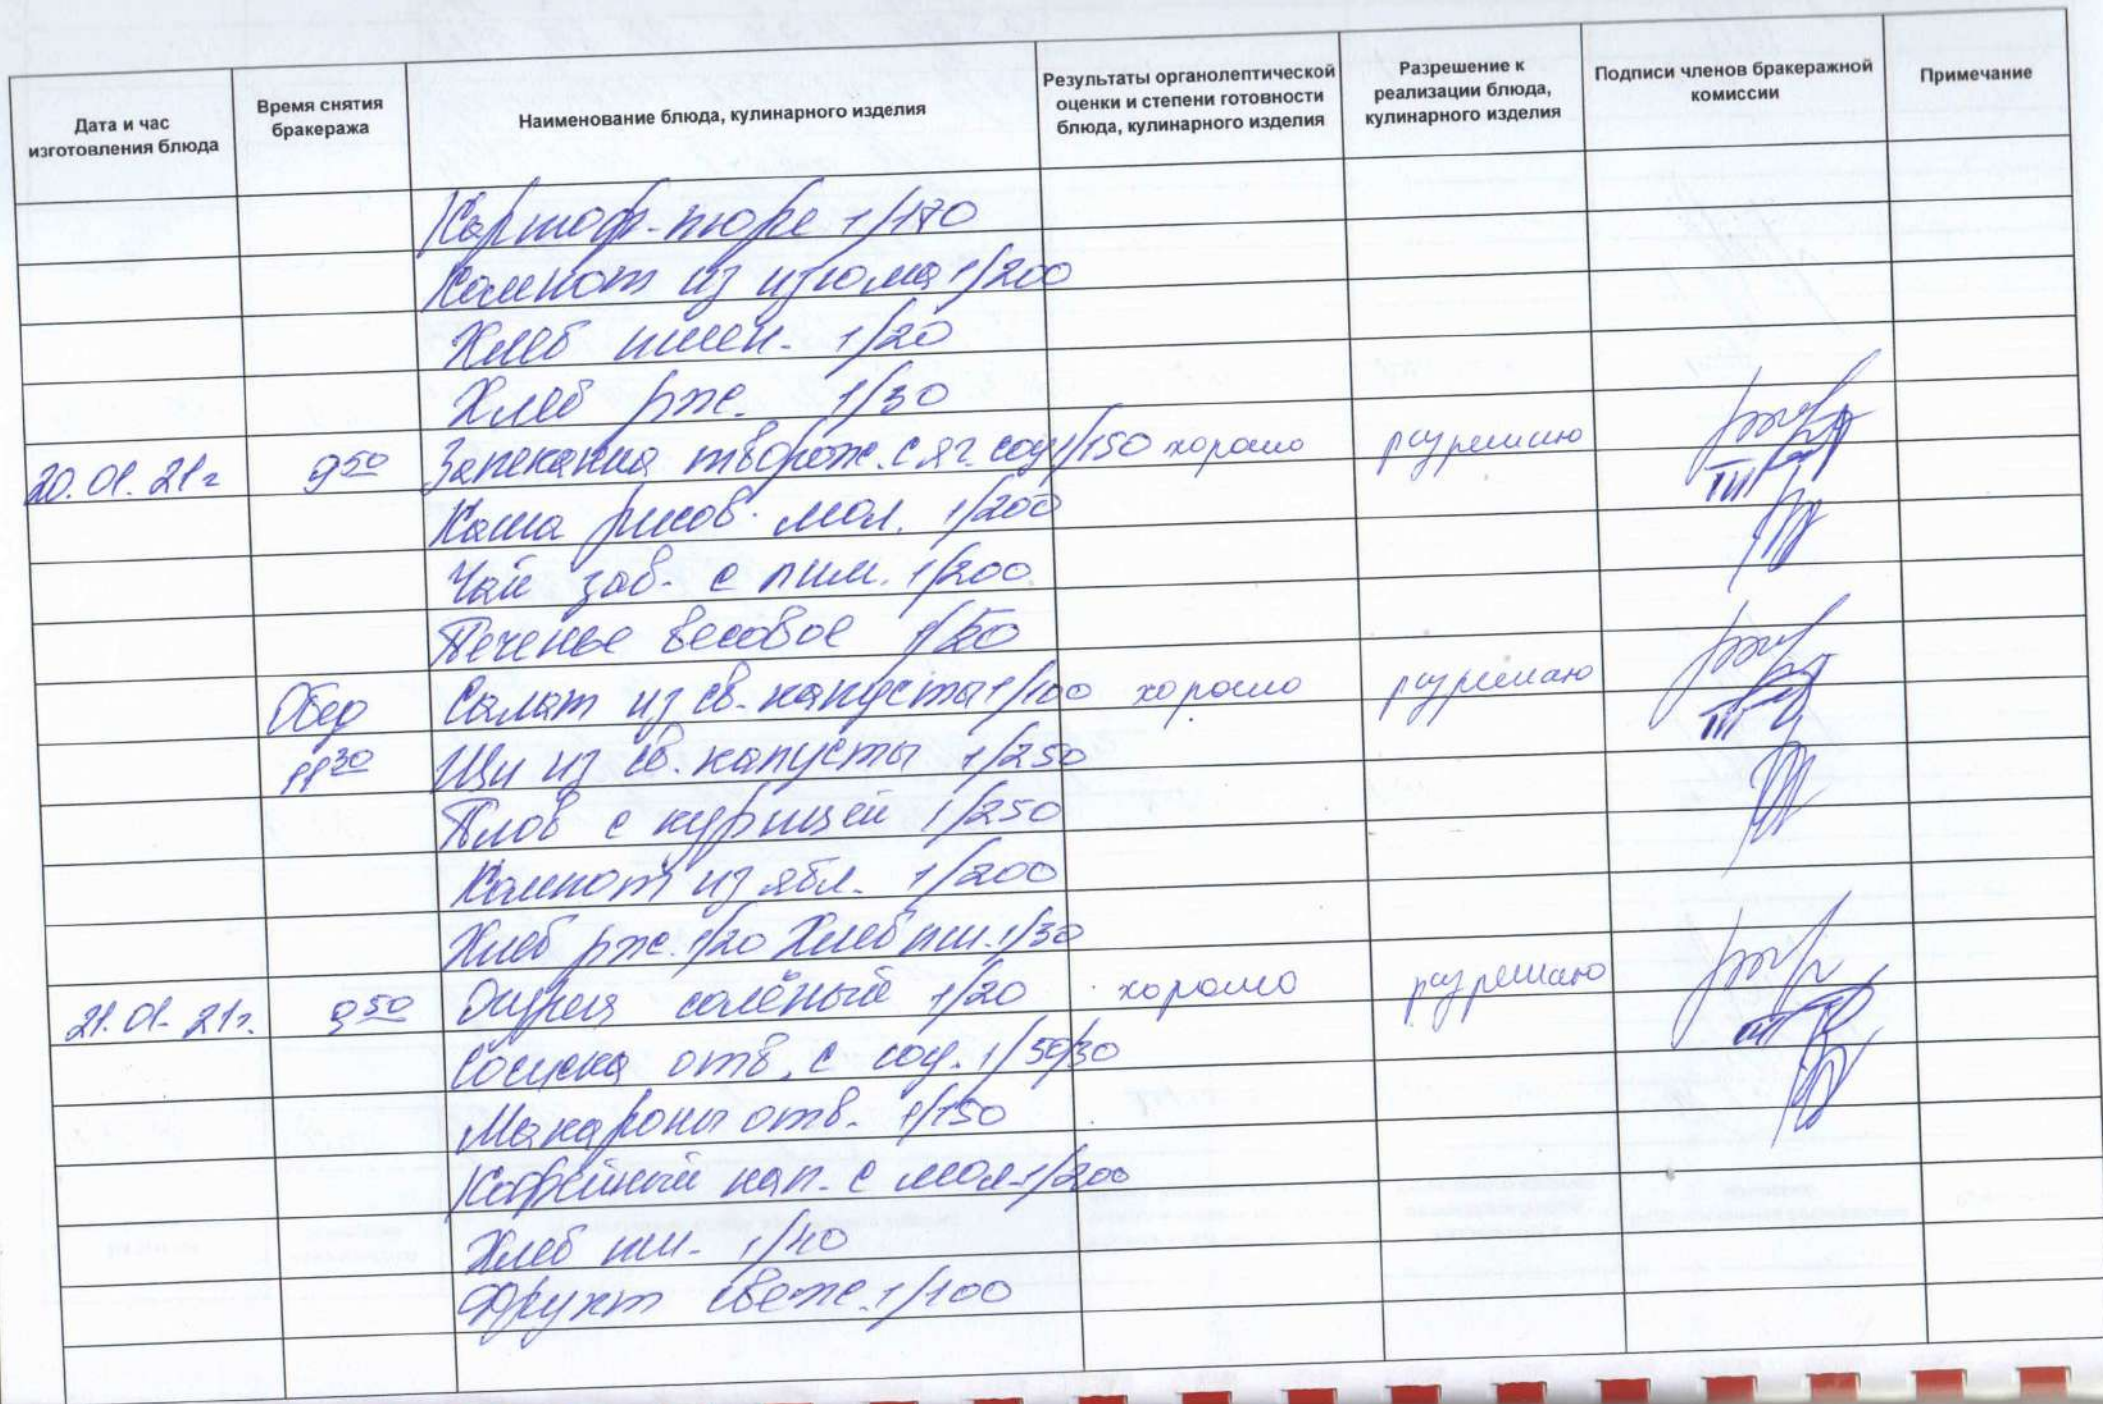 Дата и час изготовления блюда
Время снятия бракеража
Наименование блюда, кулинарного изделия
Результаты органолептической оценки и степени готовности блюда, кулинарного изделия
Разрешение к реализации блюда, кулинарного изделия
Подписи членов бракеражной комиссии
Примечание
Картоф-пюре 1/170
Компот из изюма 1/200
Хлеб пшен- 1/20
Хлеб рж. 1/30
20.01.21г 9 50 Запеканка творож. с яг. соу 1/150 хорошо разрешаю
Каша рисов. мол. 1/200
Чай зав- с лим. 1/200
Печенье весовое 1/20
Обед Салат из св. капусты 1/100 хорошо разрешаю
11 30 Щи из св. капусты 1/250
Плов с курицей 1/250
Компот из ябл. 1/200
Хлеб рж. 1/20 Хлеб пш. 1/30
21.01-21г. 9 50 Огурец солёный 1/20 хорошо разрешаю
Сосиска отв. с соу. 1/50/30
Макароны отв. 1/150
Кофейный нап- с мол. 1/200
Хлеб пш- 1/40
Фрукт свеж. 1/100